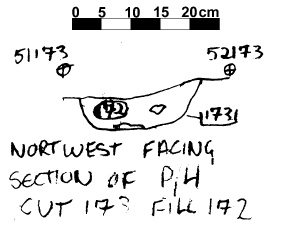 0 5 10 15 20cm
51173 52173
172
173
NORTWEST FACING
SECTION OF P/H
CUT 173 FILL 172